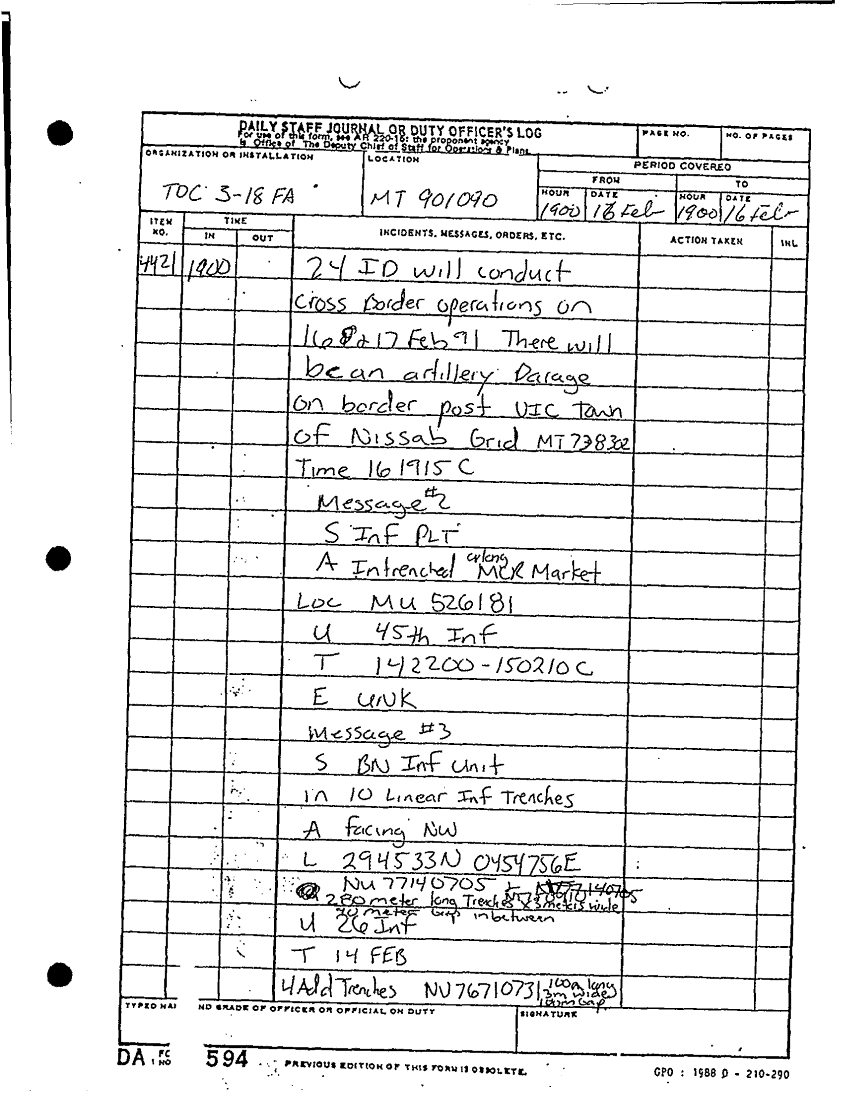 DAILY STAFF JOURNAL OR DUTY OFFICER'S LOG
For use of this form, see AR 220-15; the proponent agency
is Office of The Deputy Chief of Staff for Operations & Plans
PAGE NO.
NO. OF PAGES
ORGANIZATION OR INSTALLATION
TOC 3-18 FA
LOCATION
MT 901090
PERIOD COVERED
FROM
TO
HOUR
DATE
HOUR
DATE
1900 16 Feb 1900 16 Feb
ITEM NO.
TIME
IN
OUT
INCIDENTS, MESSAGES, ORDERS, ETC.
ACTION TAKEN
INL
4421 1900 24 ID will conduct
Cross Border operations on
16 17 Feb 91 There will
be an artillery Barage
on border post VIC Town
of Nissab Grid MT 738302
Time 161915 C
Message #2
S Inf PLT
A Intrenched along MCR Market
Loc MU 526181
U 45th Inf
T 142200-150210C
E UNK
Message #3
S BN Inf Unit
in 10 Linear Inf Trenches
A facing NW
L 294533N 0454756E
NU 77140705
280 meter long Trenches x 3 meters wide
70 meter Gap inbetween
U 26 Inf
T 14 FEB
4 Add Trenches NU 76710731 - 100m long
3m wide
100m Gap
TYPED NA ND GRADE OF OFFICER OR OFFICIAL ON DUTY
SIGNATURE
DA FO 1 NO 594
PREVIOUS EDITION OF THIS FORM IS OBSOLETE.
GPO : 1988 O - 210-290